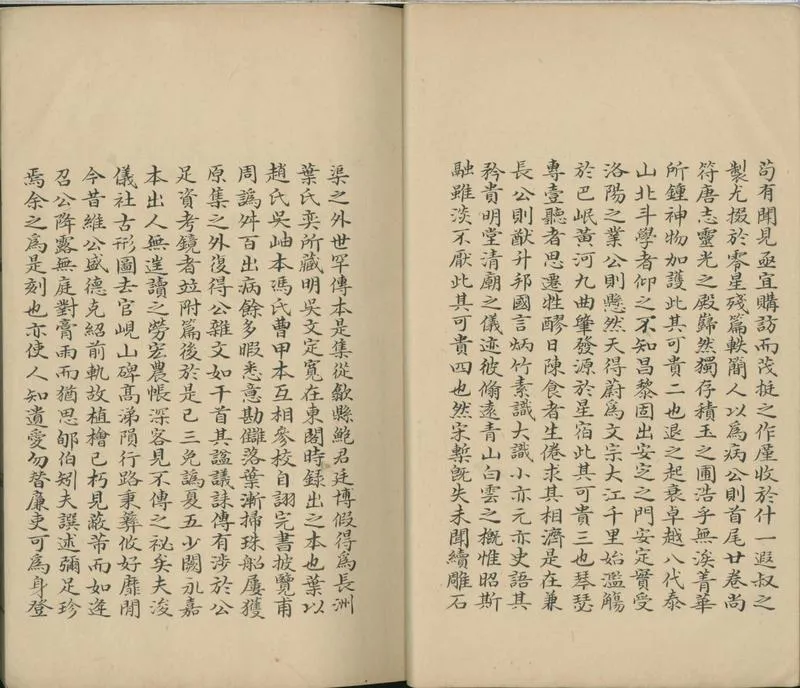 苟有聞見亟宜購訪而茂挺之作僅收於什一遐叔之
製尤掇於零星殘篇軼簡人以為病公則首尾廿卷尚
符唐志靈光之殿巋然獨存積玉之圃浩乎無涘菁華
所鍾神物加護此其可貴二也退之起衰卓越八代泰
山北斗學者仰之不知昌黎固出安定之門安定實受
洛陽之業公則懸然天得蔚為文宗大江千里始濫觴
於巴岷黃河九曲肇發源於星宿此其可貴三也琴瑟
專壹聽者思遷牲醪日陳食者生倦求其相濟是在兼
長公則猷升邦國言炳竹素識大識小亦元亦史語其
矜貴明堂清廟之儀迹彼翛遠青山白雲之概惟昭斯
融雖淡不厭此其可貴四也然宋槧既失未聞續雕石
渠之外世罕傳本是集從歙縣鮑君廷博假得為長洲
葉氏奕所藏明吳文定寬在東閣時録出之本也葉以
趙氏吳岫本馮氏曹甲本互相參校自詡完書披覽甫
周譌舛百出病餘多暇悉意勘讎落葉漸掃珠船屢獲
原集之外復得公雜文如干首其謚議誄傳有涉於公
足資考鏡者竝附篇後於是己三免譌夏五少闕永嘉
本出人無遑讀之勞宏農帳深客見不傳之祕矣夫浚
儀社古形圖去官峴山碑高涕隕行路秉彝攸好靡閒
今昔維公盛德克紹前軌故植檜已朽見蔽芾而如逢
召公陴露無庭對膏雨而猶思郇伯矧夫譔述彌足珍
焉余之為是刻也亦使人知遺愛勿替廉吏可為身登